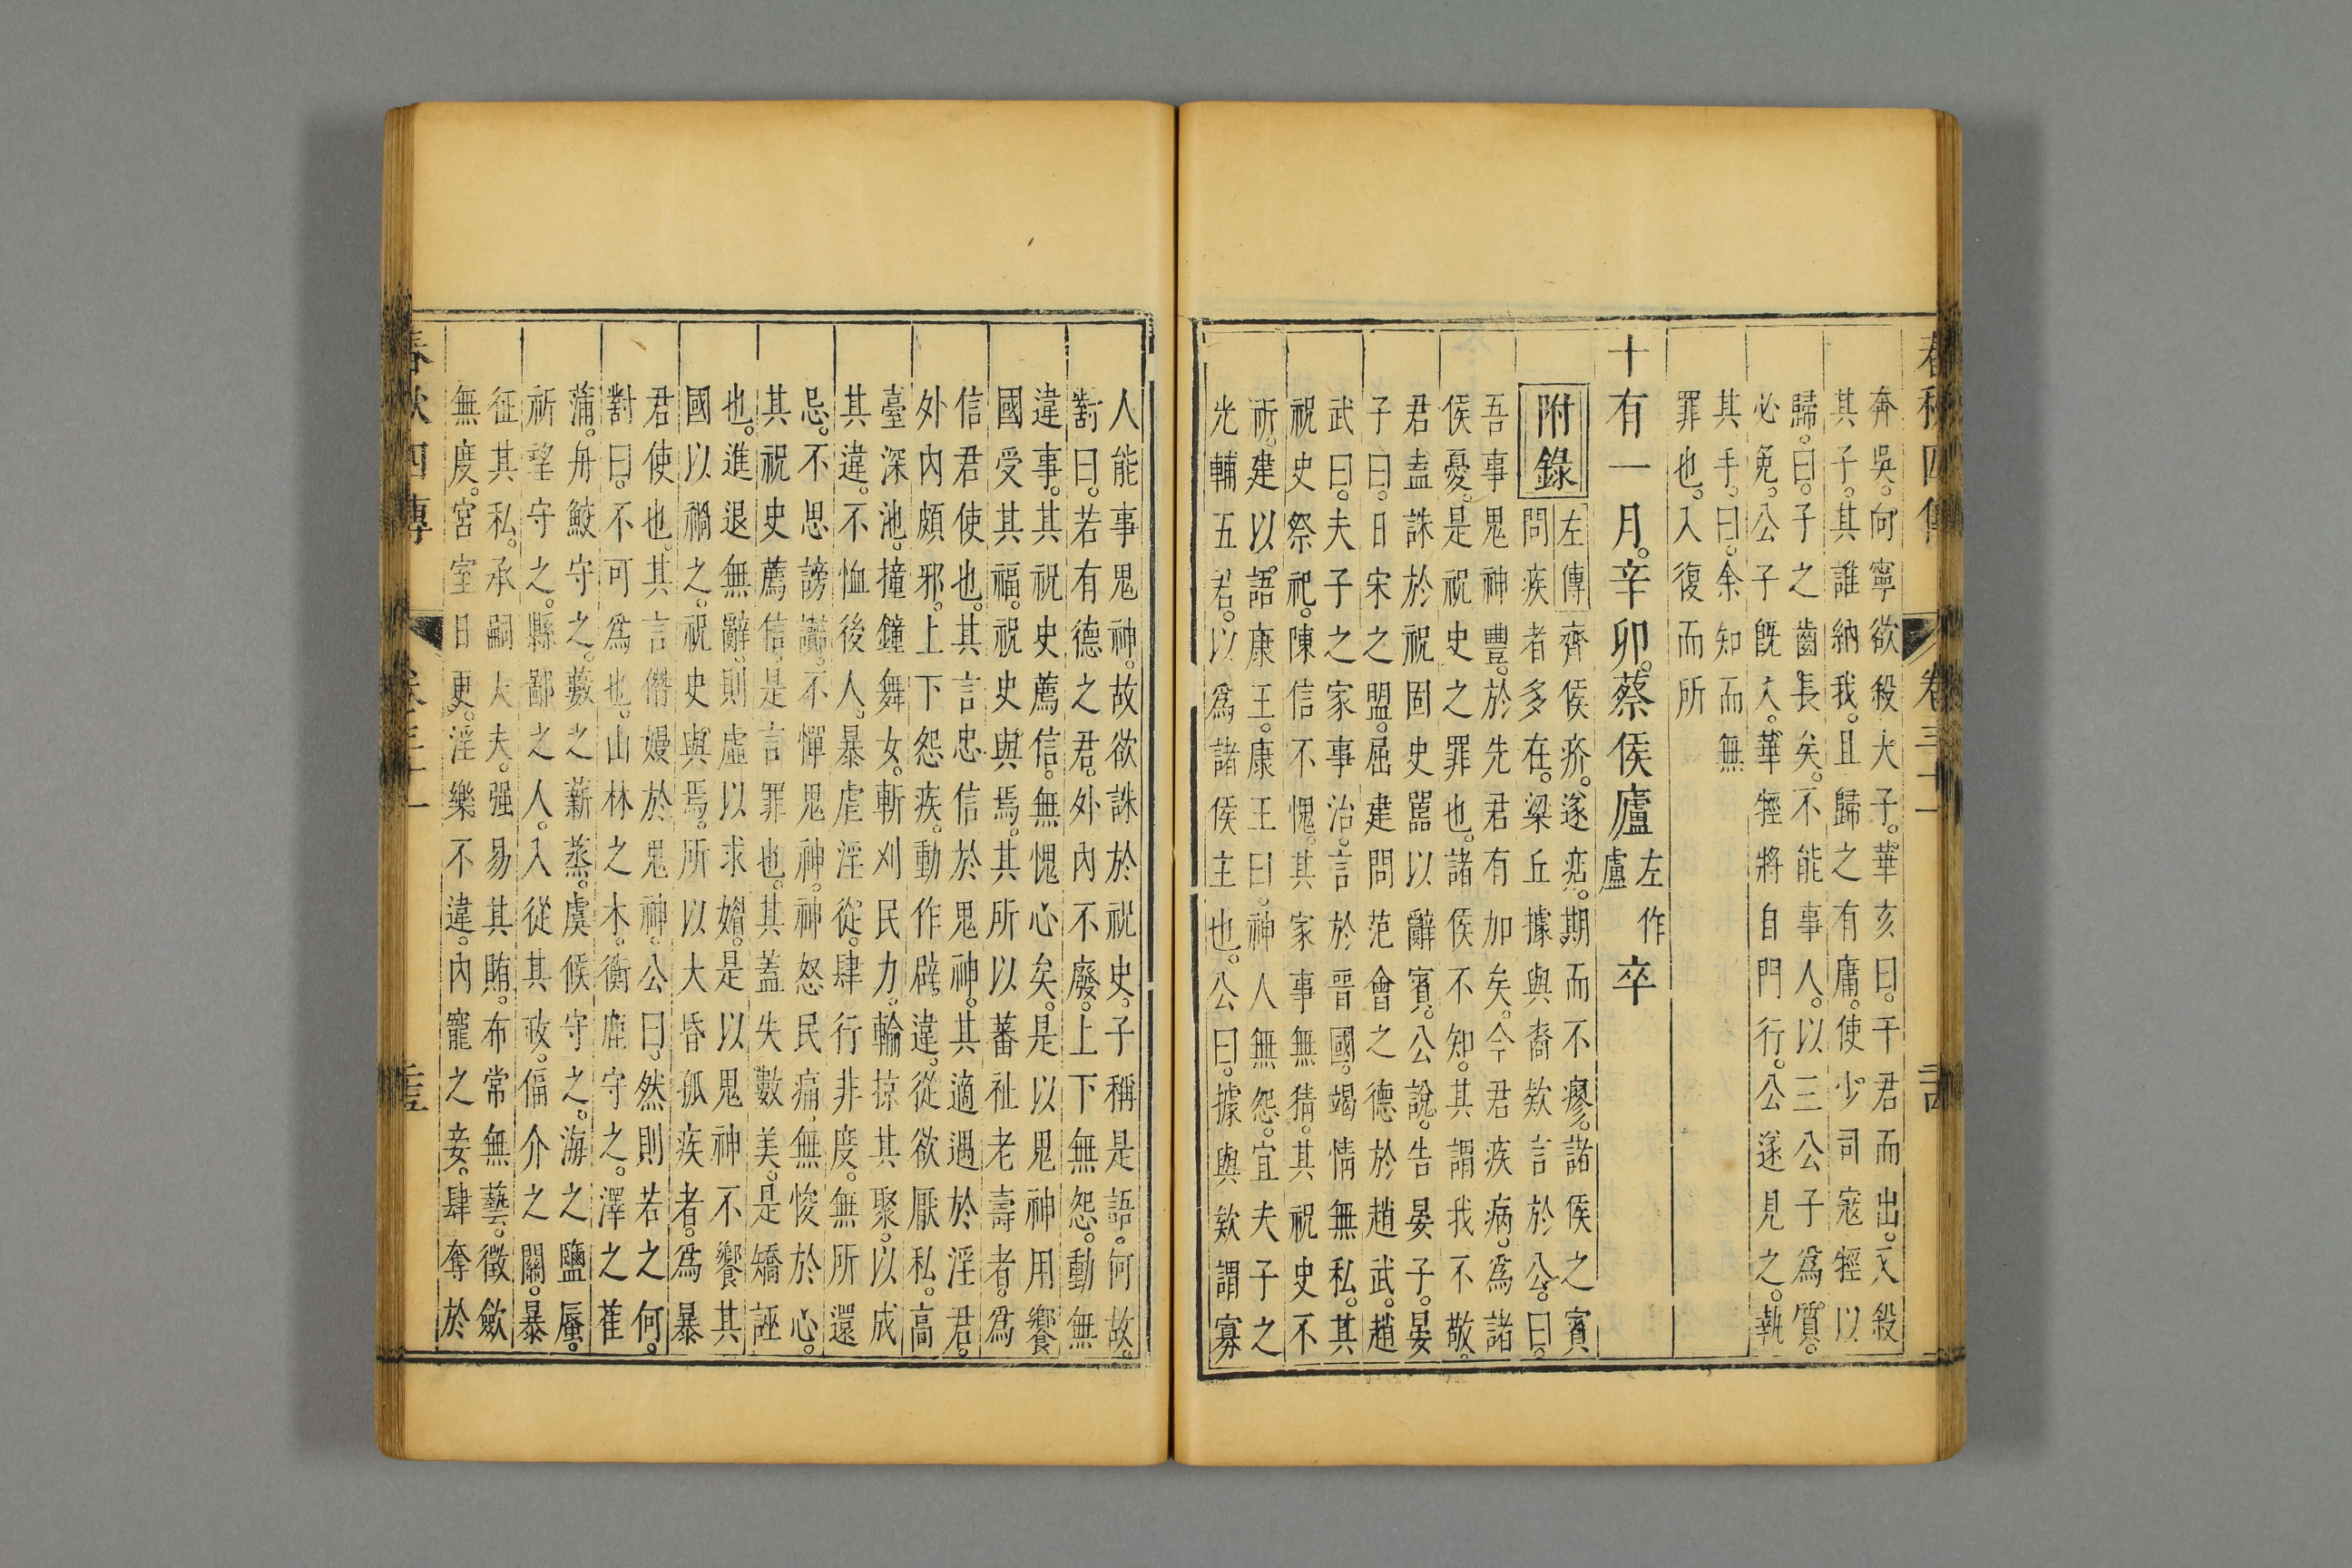 春秋四傳 卷三十一
奔吳。向寧欲殺大子。華亥曰。干君而出。又殺
其子。其誰納我。且歸之有庸。使少司寇牼以
歸。曰。子之齒長矣。不能事人。以三公子為質。
必免。公子旣入。華牼將自門行。公遂見之。執
其手。曰。余知而無
罪也。入復而所
十有一月。辛卯。蔡侯廬左作盧卒
附錄 左傳 齊侯疥。遂痁。期而不瘳。諸侯之賓
問疾者多在。梁丘據與裔欵言於公。曰。
吾事鬼神豐。於先君有加矣。今君疾病。爲諸
侯憂。是祝史之罪也。諸侯不知。其謂我不敬。
君盍誅於祝固史嚚以辭賓。公說。告晏子。晏
子曰。日宋之盟。屈建問范會之德於趙武。趙
武曰。夫子之家事治。言於晉國。竭情無私。其
祝史祭祀。陳信不愧。其家事無猜。其祝史不
祈。建以語康王。康王曰。神人無怨。宜夫子之
光輔五君。以爲諸侯主也。公曰。據與欵謂寡
人能事鬼神。故欲誅於祝史。子稱是語。何故。
對曰。若有德之君。外內不廢。上下無怨。動無
違事。其祝史薦信。無愧心矣。是以鬼神用饗
國受其福。祝史與焉。其所以蕃祉老壽者。爲
信君使也。其言忠信於鬼神。其適遇於淫君。
外內頗邪。上下怨疾。動作辟違。從欲厭私。高
臺深池。撞鐘舞女。斬刈民力。輸掠其聚。以成
其違。不恤後人。暴虐淫從。肆行非度。無所還
忌。不思謗讟。不憚鬼神。神怒民痛。無悛於心。
其祝史薦信。是言罪也。其蓋失數美。是矯誣
也。進退無辭。則虛以求媚。是以鬼神不饗其
國以禍之。祝史與焉。所以夭昏孤疾者。爲暴
君使也。其言僭嫚於鬼神。公曰。然則若之何。
對曰。不可爲也。山林之木。衡鹿守之。澤之萑
蒲。舟鮫守之。藪之薪蒸。虞候守之。海之鹽蜃。
祈望守之。縣鄙之人。入從其政。偪介之關。暴
征其私。承嗣大夫。强易其賄。布常無藝。徵斂
無度。宮室日更。淫樂不違。內寵之妾。肆奪於
春秋四傳 卷三十一